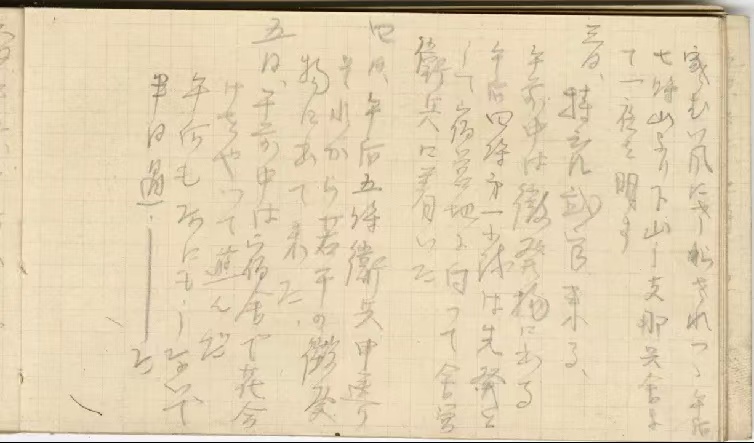 寒むい風にさらされつゝ午后
七時山より下山し支那兵舎に
て一夜を明す
三日、持
午前中は徴発物に出る
午后四時第一小隊は先発と
して宿営地に向って舎営
衛兵に着いた
四日、午后五時衛兵申送り
それから若干の徴発
物に出て来た、
五日、午前中は宿舎で花合
けをやって遊んだ
午后も何にもしないで
半日過
た